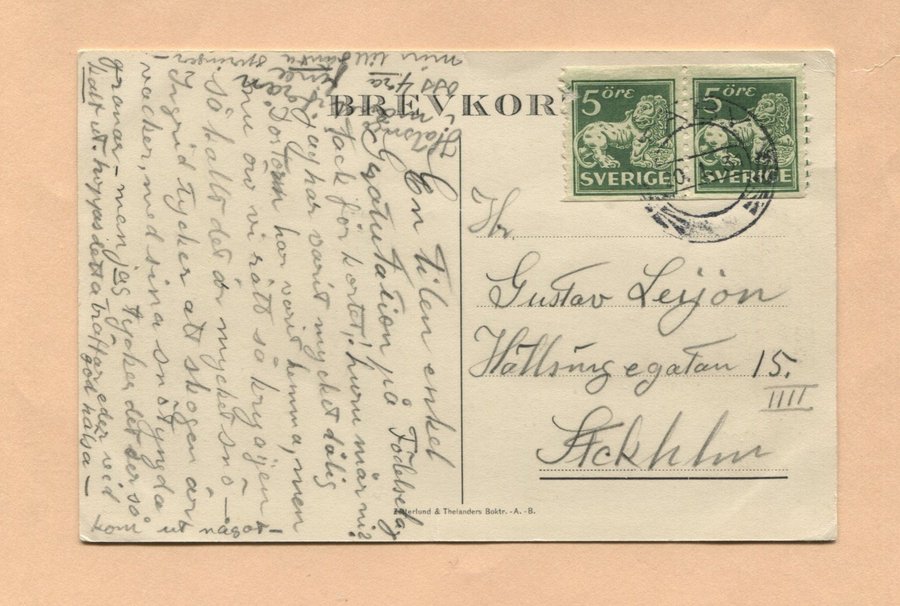 BREVKOR
5 ÖRE
SVERIGE
5 ÖRE
SVERIGE
En liten enkel
Gratulation på Födelsedag
Tack för kortet! hurn mår ni?
jag har varit mycket dålig
har varit hemma, men
nu vi rätt så krya igen
Så kallt det är mycket snö –
Ingrid tycker att skogen är
vacker, med sina snötyngda
granar – men jag tycker det är så
kallt. hoppas detta träffar eder vid
god hälsa –
kom ut något –
Hr.
Gustav Leijon
Hälsingegatan 15.
IIII
Stckhlm
Zetterlund & Thelanders Boktr. -A. -B.